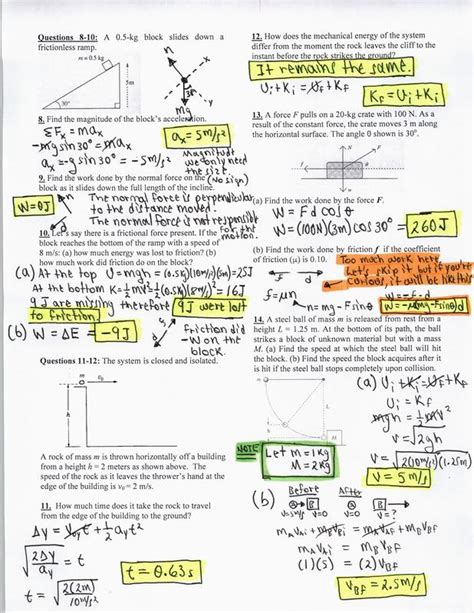 Questions 8-10: A 0.5-kg block slides down a
frictionless ramp.
m = 0.5 kg
5m
30°
n
x
mg
8. Find the magnitude of the block's acceleration.
ΣFx = max
-mg sin30° = max
ax = -g sin30° = -5m/s²
ax = 5m/s²
Magnitude
we only need
the size.
(No sign)
9. Find the work done by the normal force on the
block as it slides down the full length of the incline.
W = 0J
The normal force is perpendicular
to the distance moved.
The normal force is not responsible
for the
motion.
10. Let's say there is a frictional force present. If the
block reaches the bottom of the ramp with a speed of
8 m/s: (a) how much energy was lost to friction? (b)
how much work did friction do on the block?
(a) At the top U=mgh = (0.5kg)(10m/s²)(5m)=25J
At the bottom K=½mv²=½(0.5kg)(8m/s)²=16J
9J are missing therefore 9J were lost
to friction.
(b) W = ΔE = -9J
Friction did
-W on the
block.
Questions 11-12: The system is closed and isolated.
m
v₀
h
A rock of mass m is thrown horizontally off a building
from a height h = 2 meters as shown above. The
speed of the rock as it leaves the thrower's hand at the
edge of the building is v₀ = 2 m/s.
11. How much time does it take the rock to travel
from the edge of the building to the ground?
Δy = v₀yt + ½ayt²
√(2Δy/ay) = t
t = √(2(2m)/10m/s²)
t = 0.63s
12. How does the mechanical energy of the system
differ from the moment the rock leaves the cliff to the
instant before the rock strikes the ground?
It remains the same.
Ui+Ki = Uf+Kf
Kf = Ui+Ki
13. A force F pulls on a 20-kg crate with 100 N. As a
result of the constant force, the crate moves 3 m along
the horizontal surface. The angle θ shown is 30°.
N
F
(a) Find the work done by the force F.
W = Fd cosθ
W = (100N)(3m)cos30° = 260J
(b) Find the work done by friction f if the coefficient
of friction (μ) is 0.10.
Too much work here.
Let's skip it but if you're
curious, it will be like this
f
d
F=μn
n = mg-Fsinθ
14. A steel ball of mass m is released from rest from a
height L = 1.25 m. At the bottom of its path, the ball
strikes a block of unknown material but with a mass
M. (a) Find the speed at which the steel ball will hit
the block. (b) Find the speed the block acquires after it
is hit if the steel ball stops completely upon collision.
m
L
M
(a) Ui+Ki=Uf+Kf
Ui = Kf
mgh = ½mv²
v = √2gh
v = √2(10m/s²)(1.25m)
v = 5m/s
NOTE
Let m = 1kg
M = 2kg
(b) Before After
A B A B
v=5m/s v=0 v=0 v=?
mAvAi + mBvBi = mAvAf + mBvBf
mAvAi = mBvBf
(1)(5) = (2)vBf
vBf = 2.5m/s